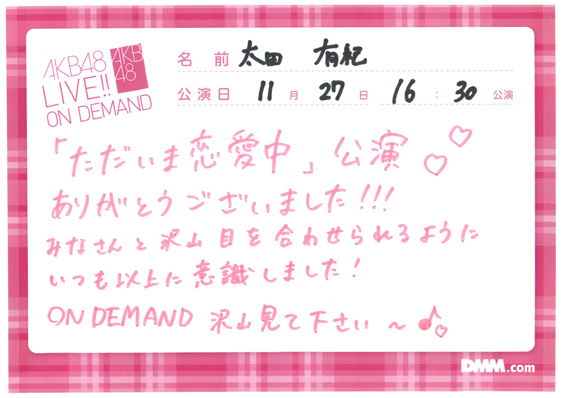 AKB48
LIVE!!
ON DEMAND
AKB
48
名前 太田 有紀
公演日 11月27日 16:30公演
「ただいま恋愛中」公演♡♡
ありがとうございました!!!
みなさんと沢山目を合わせられるように
いつも以上に意識しました!
ON DEMAND 沢山見て下さい〜♪♡
DMM.com